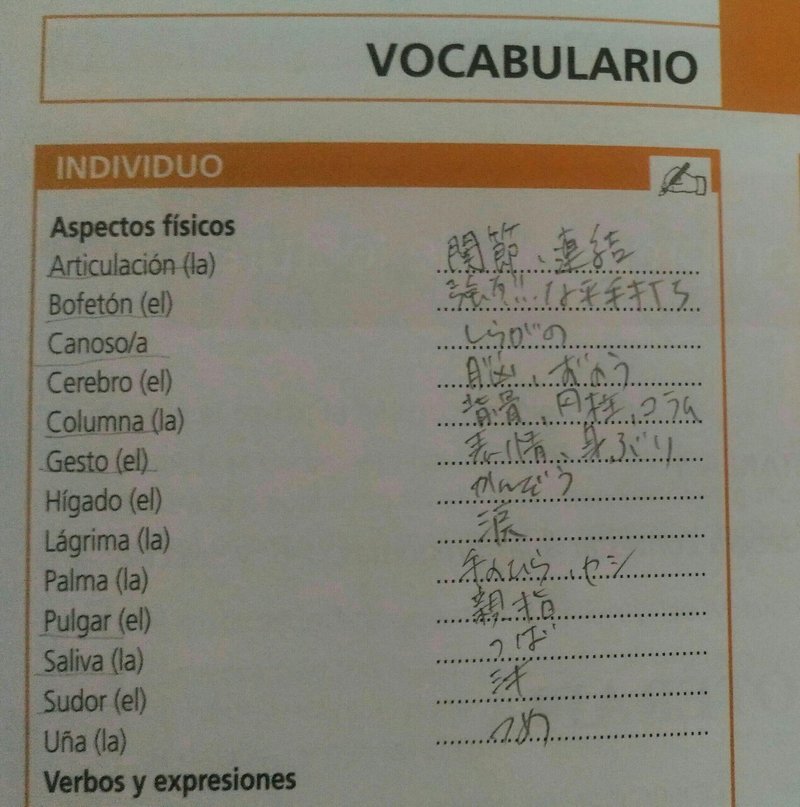 VOCABULARIO
INDIVIDUO
Aspectos físicos
Articulación (la) 関節、連結
Bofetón (el) 強烈な平手打ち
Canoso/a しらがの
Cerebro (el) 脳、ずのう
Columna (la) 背骨、円柱、コラム
Gesto (el) 表情、身ぶり
Hígado (el) かんぞう
Lágrima (la) 涙
Palma (la) 手のひら、ヤシ
Pulgar (el) 親指
Saliva (la) つば
Sudor (el) 汗
Uña (la) つめ
Verbos y expresiones